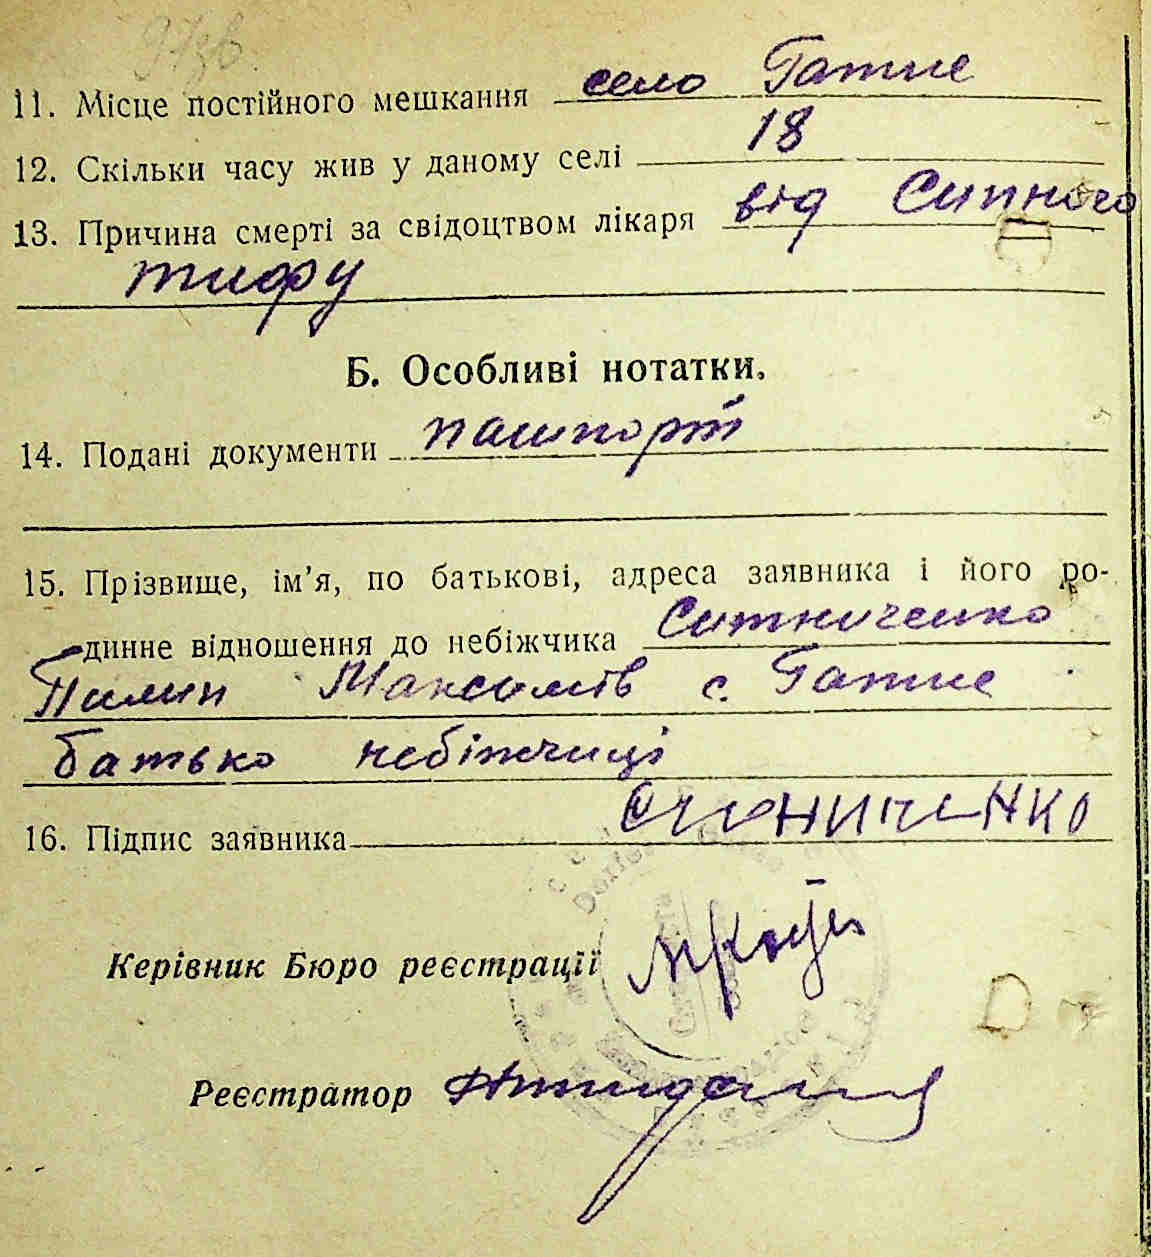 11. Місце постійного мешкання село Гатне
12. Скільки часу жив у даному селі 18
13. Причина смерті за свідоцтвом лікаря від Сипного
тифу
Б. Особливі нотатки.
14. Подані документи пашпорт
15. Прізвище, ім’я, по батькові, адреса заявника і його ро-
динне відношення до небіжчика Ситниченко
Пилип Максимів с. Гатне
батько небіжчиці
16. Підпис заявника
Керівник Бюро реєстрації
Реєстратор